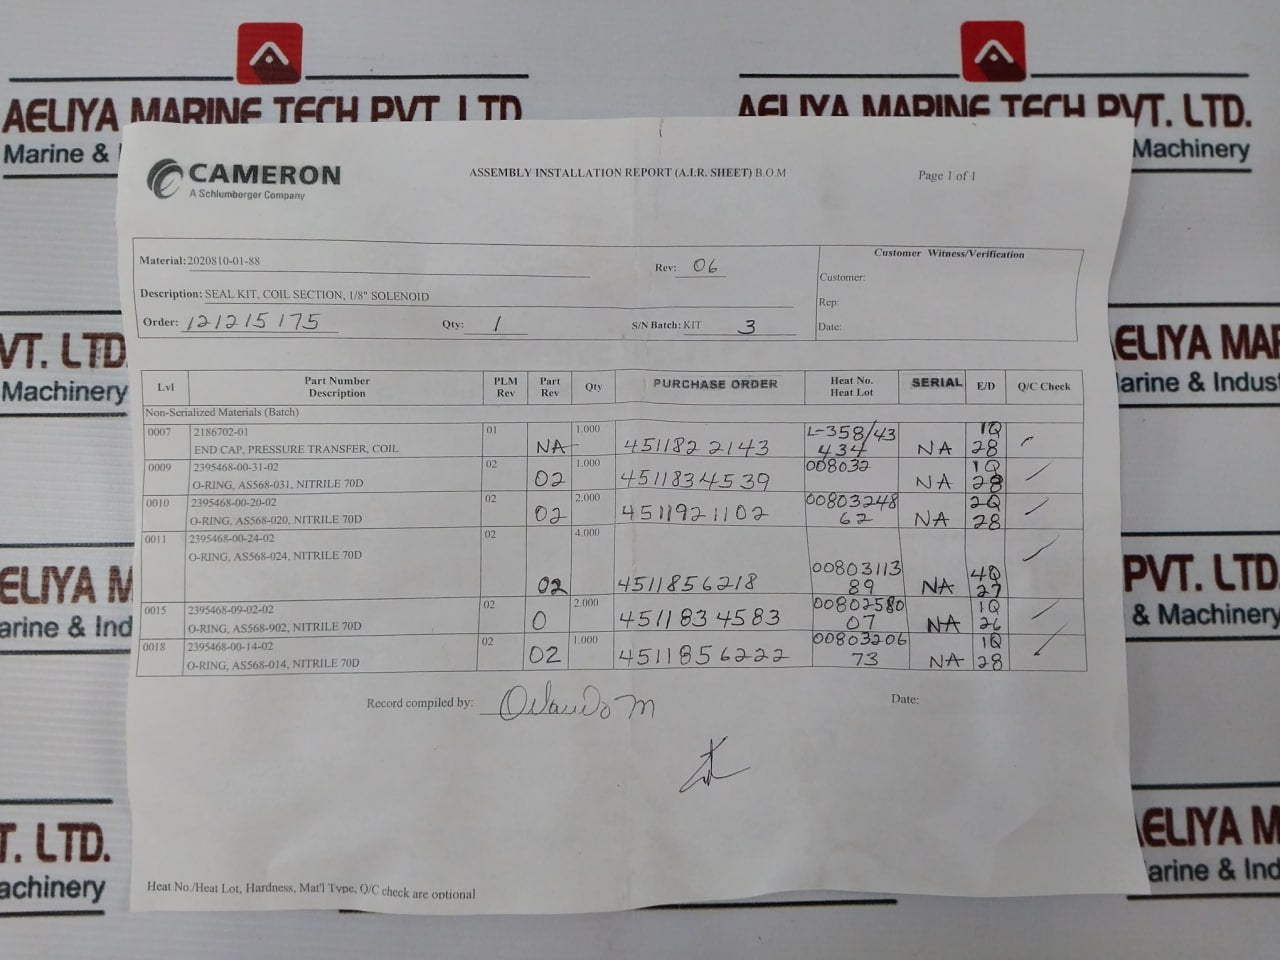 AELIYA MARINE TECH PVT. LTD.
AELIYA MARINE TECH PVT. LTD.
Marine &
Machinery
CAMERON
A Schlumberger Company
ASSEMBLY INSTALLATION REPORT (A.I.R. SHEET) B.O.M
Page 1 of 1
Material: 2020810-01-88
Rev: 06
Customer Witness/Verification
Customer:
Description: SEAL KIT, COIL SECTION, 1/8" SOLENOID
Rep:
Order: 121215175 Qty: 1 S/N Batch: KIT 3
Date:
Lvl Part Number Description PLM Rev Part Rev Qty PURCHASE ORDER Heat No. Heat Lot SERIAL E/D Q/C Check
Non-Serialized Materials (Batch)
0007 2186702-01 01 1.000 L-358/43 1Q
END CAP, PRESSURE TRANSFER, COIL NA 4511822143 434 NA 28
0009 2395468-00-31-02 02 1.000 008032 1Q
O-RING, AS568-031, NITRILE 70D 02 4511834539 NA 28
0010 2395468-00-20-02 02 2.000 00803248 2Q
O-RING, AS568-020, NITRILE 70D 02 4511921102 62 NA 28
0011 2395468-00-24-02 02 4.000
O-RING, AS568-024, NITRILE 70D
00803113 4Q
02 4511856218 89 NA 27
0015 2395468-09-02-02 02 2.000 00802580 1Q
O-RING, AS568-902, NITRILE 70D 0 4511834583 07 NA 26
0018 2395468-00-14-02 02 1.000 00803206 1Q
O-RING, AS568-014, NITRILE 70D 02 4511856222 73 NA 28
Record compiled by: Orlando M
Date:
Heat No./Heat Lot, Hardness, Mat'l Type, Q/C check are optional
VT. LTD
Machinery
ELIYA MAR
arine & Indust
ELIYA M
arine & Ind
PVT. LTD
& Machinery
T. LTD.
achinery
ELIYA M
arine & Ind